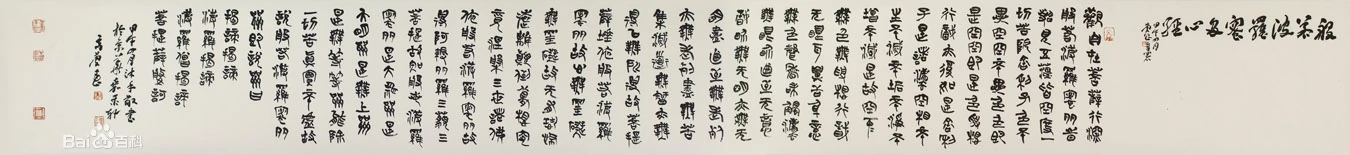 般若波羅蜜多心經
觀自在菩薩行深
般若波羅蜜多時
照見五蘊皆空度一
切苦厄舍利子色不
異空空不異色色即
是空空即是色受想
行識亦復如是舍利
子是諸法空相不
生不滅不垢不淨不
增不減是故空中
無色無受想行識
無眼耳鼻舌身意
無色聲香味觸法
無眼界乃至無意
識界無無明亦無無
明盡乃至無老死
亦無老死盡無苦
集滅道無智亦無
得以無所得故菩提
薩埵依般若波羅
蜜多故心無罣礙
無罣礙故無有恐怖
遠離顛倒夢想究
竟涅槃三世諸佛
依般若波羅蜜多故
得阿耨多羅三藐三
菩提故知般若波羅
蜜多是大神咒是
大明咒是無上咒
是無等等咒能除
一切苦真實不虛故
說般若波羅蜜多
咒即說咒曰
揭諦揭諦
波羅揭諦
波羅僧揭諦
菩提薩婆訶
甲午四月沐手敬書
於京華
Bai百科